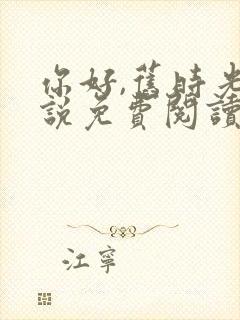 你好,舊時光
說免費閱讀
江寧